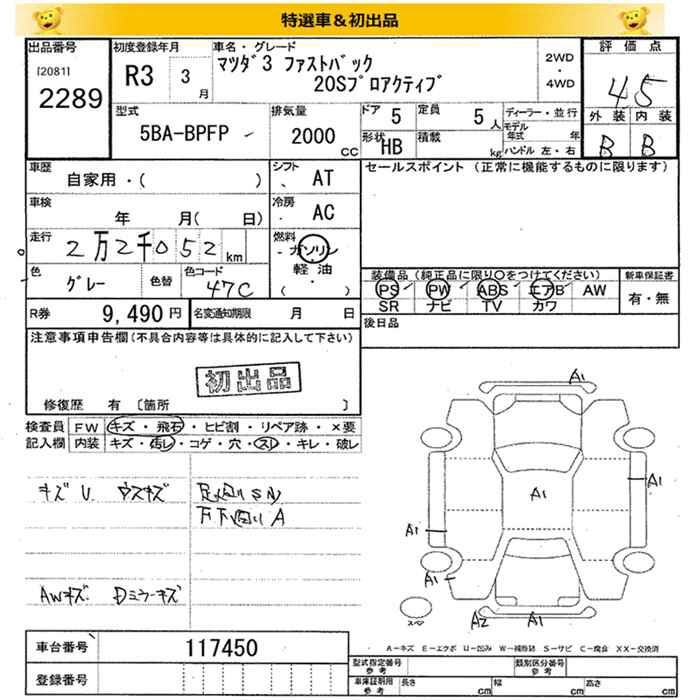 特選車＆初出品
出品番号
[2081]
2289
初度登録年月
R3 3
月
車名・グレード
マツダ3 ファストバック
20Sプロアクティブ
2WD
・
4WD
評価点
4.5
外装 内装
B B
型式
5BA-BPFP
排気量
2000
CC
ドア 5
形状 HB
定員 5
人
積載
kg
ディーラー・並行
モデル
年式 年
ハンドル 左・右
車歴
自家用・( )
シフト
AT
セールスポイント (正常に機能するものに限ります)
車検
年 月( 日)
冷房
AC
走行
2万2千052
km
燃料
・ガソリン
軽油・
( )
色
グレー
色替
色コード
47C
装備品 (純正品に限り○をつけてください)
PS PW ABS エアB AW
SR ナビ TV カワ
新車保証書
有・無
R券
9,490 円
名変通知期限
月 日
後日品
注意事項申告欄 (不具合内容等は具体的に記入して下さい)
初出品
修復歴 有 [箇所 ]
検査員
記入欄
FW キズ・飛石・ヒビ割・リペア跡・×要
内装 キズ・汚レ・コゲ・穴・スレ・キレ・破レ
キズ U ウスキズ
下廻りA
AWキズ Dミラーキズ
A1
A1
A1
A1
A1
A2 A1
スペ
A－キズ E－エクボ U－凹み W－補修跡 S－サビ C－腐食 XX－交換済
車台番号
117450
登録番号
型式指定番号
参考
類別区分番号
参考
車庫証明用
参考
長さ
cm
幅
cm
高さ
cm